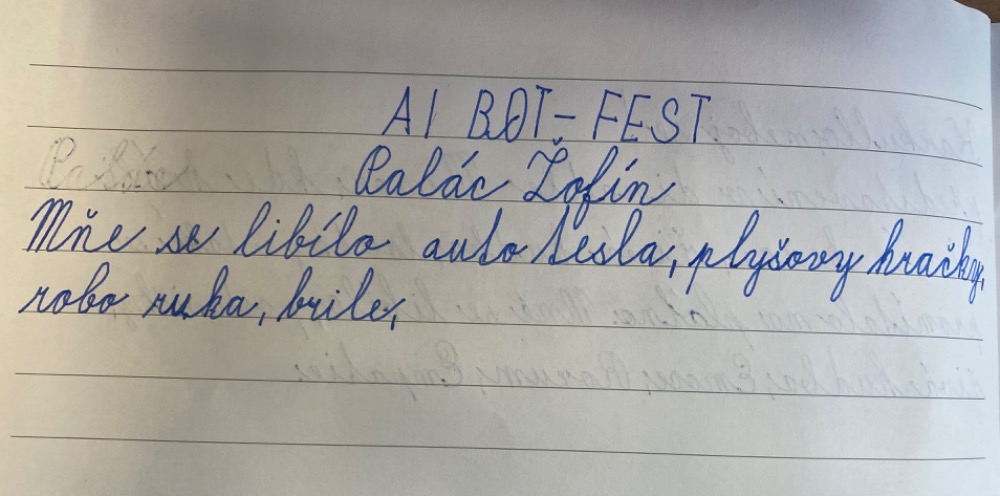 AI BOT-FEST
Palác Žofín
Mňe se libílo auto tesla, plyšovy hračky,
robo ruka, brile,